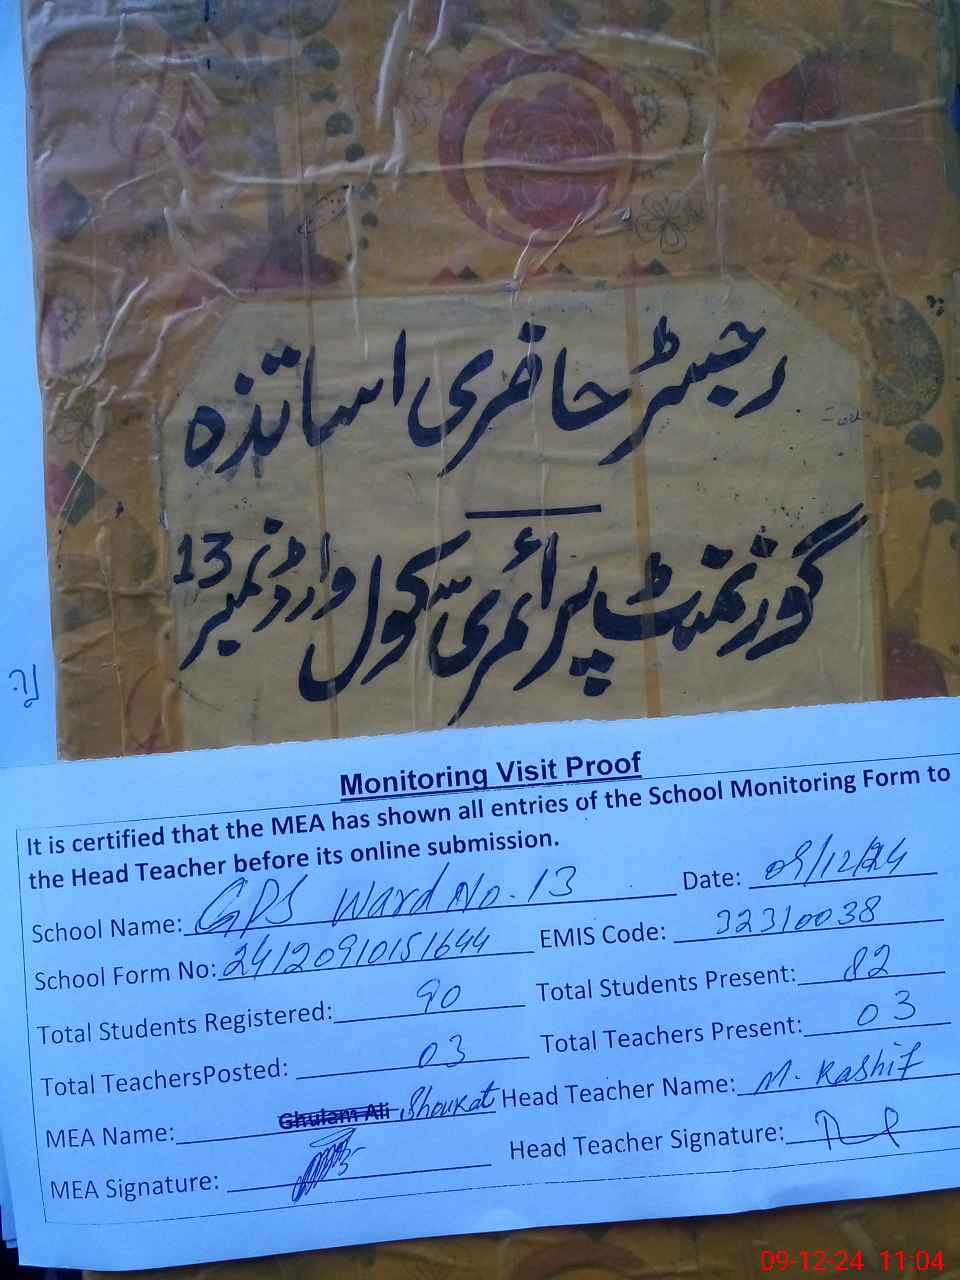 رجسٹر حاضری اساتذہ
گورنمنٹ پرائمری سکول وارڈ نمبر 13
Monitoring Visit Proof
It is certified that the MEA has shown all entries of the School Monitoring Form to
the Head Teacher before its online submission.
School Name: GPS Ward No. 13 Date: 09/12/24
School Form No: 24120910151644 EMIS Code: 32310038
Total Students Registered: 90 Total Students Present: 82
Total TeachersPosted: 03 Total Teachers Present: 03
MEA Name: Ghulam Ali Shoukat Head Teacher Name: M. Kashif
MEA Signature: Head Teacher Signature:
09-12-24 11:04